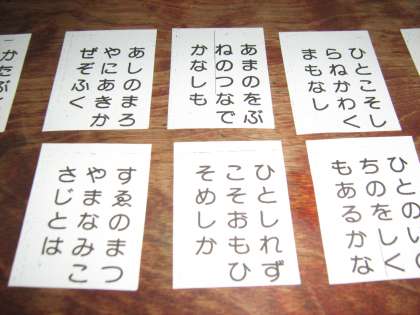 ひとこそし
らねかわく
まもなし
あまのをぶ
ねのつなで
かなしも
あしのまろ
やにあきか
ぜぞふく
かたぶ
ひとのいの
ちのをしく
もあるかな
ひとしれず
こそおもひ
そめしか
すゑのまつ
やまなみこ
さじとは